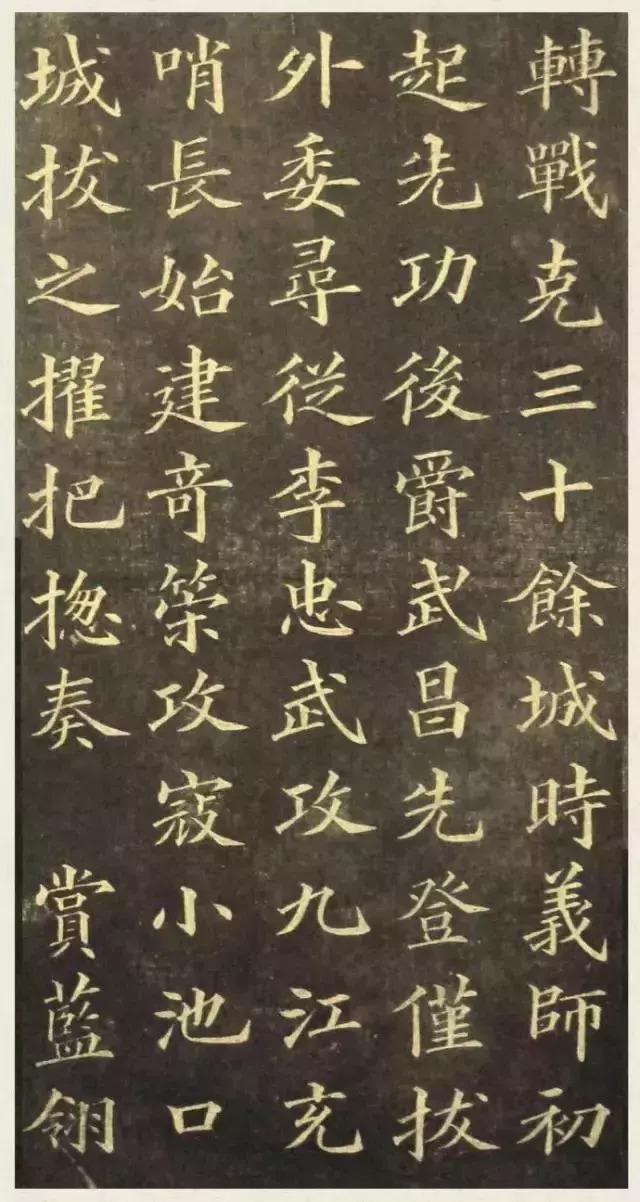 轉戰克三十餘城時義師初
起先功後爵武昌先登僅拔
外委尋從李忠武攻九江充
哨長始建奇策攻寇小池口
城拔之擢把揔奏賞藍翎